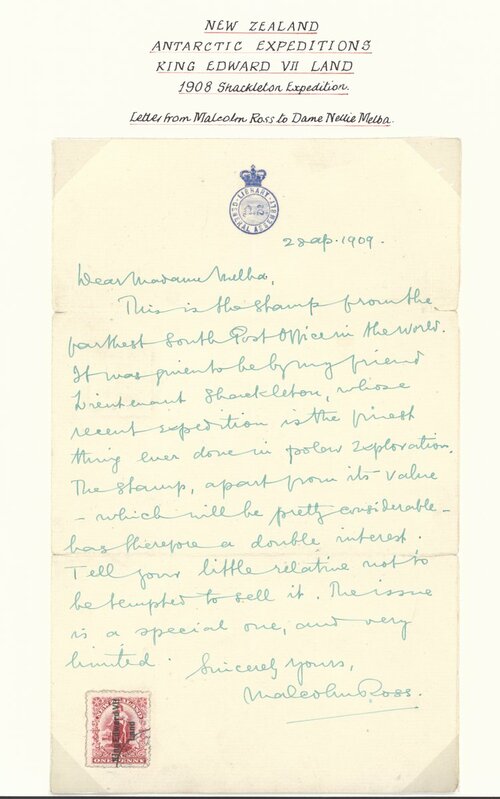 NEW ZEALAND
ANTARCTIC EXPEDITIONS
KING EDWARD VII LAND
1908 Shackleton Expedition.
Letter from Malcolm Ross to Dame Nellie Melba.
LIBRARY
GENERAL ASSEMBLY
28 ap. 1909.
Dear Madame Melba,
This is the stamp from the
farthest South Post Office in the world.
It was given to be by my friend
Lieutenant Shackleton, whose
recent expedition is the finest
thing ever done in polar Exploration.
The stamp, apart from its value
- which will be pretty considerable -
has therefore a double interest.
Tell your little relative not to
be tempted to sell it. The issue
is a special one, and very
limited.
Sincerely Yours,
Malcolm Ross.
NEW ZEALAND
King Edward VII
Land
ONE PENNY